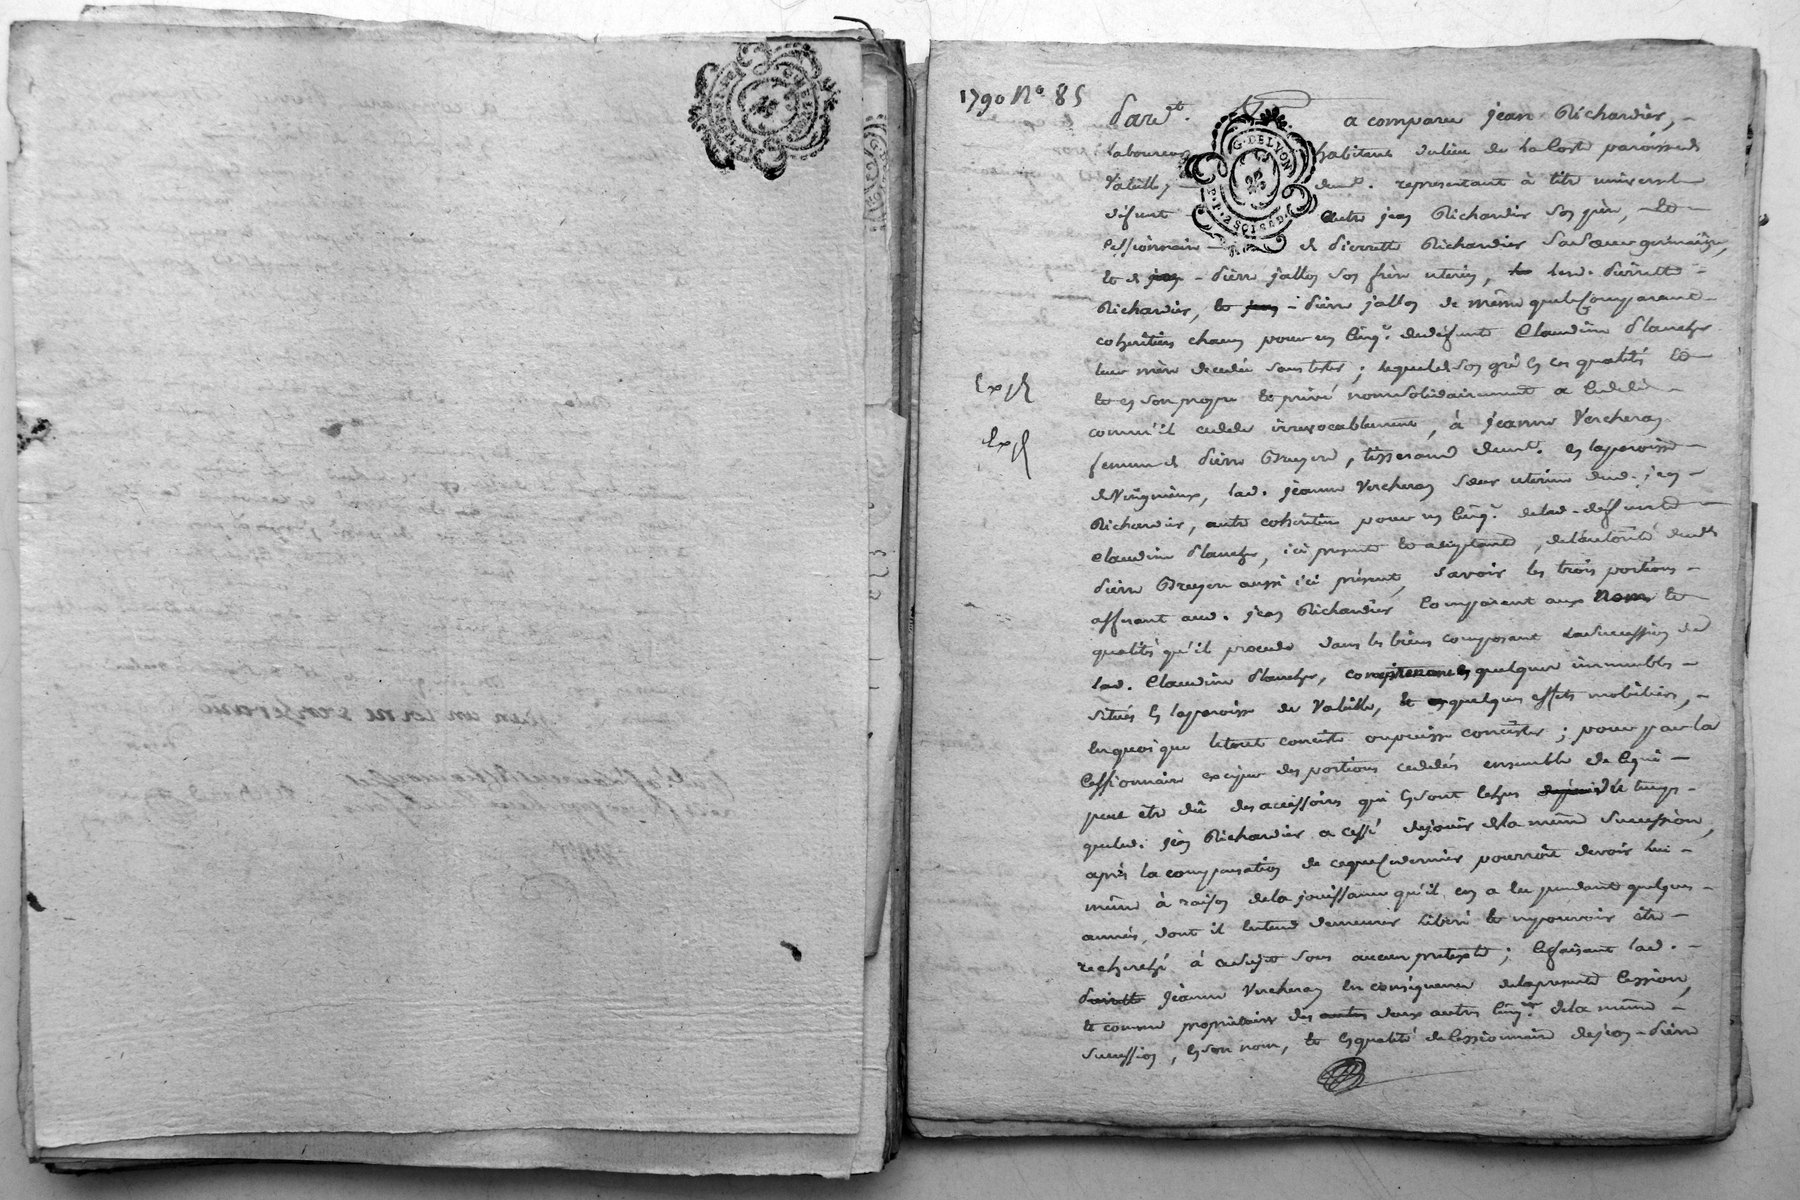 1790 N.° 85
Pardt. a comparu jean Richardier,
laboureur habitant du lieu de la Coste paroisse de
Valeille, demt. representant à titre universel
défunt autre jean Richardier son père, et
Cessionnaire de Pierrette Richardier sa sœur germaine,
et de jean - Pierre jallon son frère uterin, lesd. Pierrette
Richardier, et jean - Pierre jallon de même que le Comparant
coheritiers chacun pour un cinq.e de defunte Claudine Planche
leur mère decedée sans tester ; lequel de son gré en ces qualités et
et en son propre et privé nom solidairement a cedé
comm'il cede irrevocablement, à jeanne Vercheran
femme de Pierre Bruyere, tisserand demt. en la paroisse
de Virigneux, lad. jeanne Vercheran sœur uterine dud. jean
Richardier, autre coheritiere pour un cinq.e de lad. defunte
Claudine Planche, ici presente et acceptante, de l'autorité dud.
Pierre Bruyere aussi ici présent, savoir les trois portions
afferant aud. jean Richardier Comparant aux noms et
qualités qu'il procede dans les biens composant la succession de
lad. Claudine Planche, comprenant quelques immeubles
situés en la paroisse de Valeille, et quelques effets mobiliers,
en quoi que le tout consiste ou puisse consister ; pour par la
Cessionnaire exiger des portions cedées ensemble de ce qui
peut etre dû des accessoires qui en sont echus depuis le temps
que led. jean Richardier a cessé de jouir de la même succession,
après la compensation de ce que ce dernier pourroit devoir lui
même à raison de la jouissance qu'il en a eu pendant quelques
années, dont il entend demeurer liberé et ne pouvoir être
recherché à ce sujet sous aucun pretexte ; ce faisant lad.
Pierrette jeanne Vercheran en conséquence de la presente Cession,
et comme proprietaire des autres deux autres cinq.es de la même
succession, en son nom, et en qualité de Cessionnaire de jean - Pierre
Exp.
Exp.
G. DE LYON